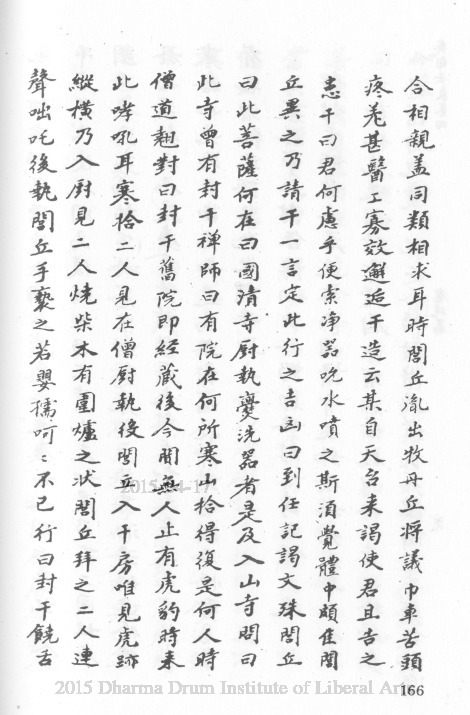 合相親蓋同類相求耳時閭丘胤出牧丹丘將議巾車苦頭
疼羌甚醫工寡效邂逅干造云某自天台来謁使君且告之
恙干曰君何慮乎便索净器呪水噴之斯須覺體中頗佳閭
丘異之乃請干一言定此行之吉凶曰到任記謁文殊閭丘
曰此菩薩何在曰國清寺厨執爨洗器者是及入山寺問曰
此寺曾有封干禅師曰有院在何所寒山拾得復是何人時
僧道翹對曰封干舊院即經藏後今閴無人止有虎豹時来
此哮吼耳寒拾二人見在僧厨執役閭丘入干房唯見虎跡
縱横乃入厨見二人燒柴木有圍爐之状閭丘拜之二人連
聲咄吒後執閭丘手褻之若嬰孺呵〻不已行曰封干饒舌
2015-04-17
2015 Dharma Drum Institute of Liberal Arts
166